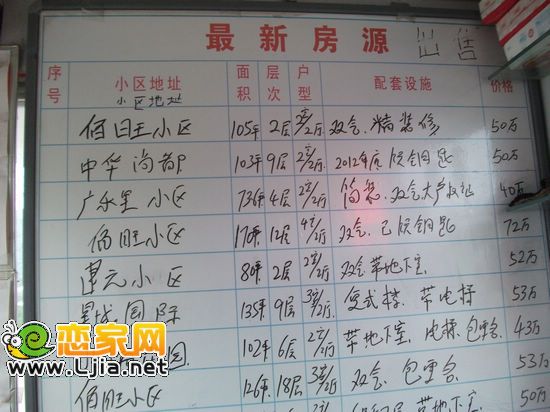 最新房源 出售
序号 小区地址 面积 层次 户型 配套设施 价格
小区地址
佰旺小区 105平 2层 2厅 双气.精装修 50万
中华尚都 103平 9层 2室/2厅 2012年底 钥匙 50万
广永里小区 73平 4层 2室/2厅 简装.双气大产权证 40万
佰旺小区 170平 12层 4室/2厅 双气.已 钥匙 72万
小区 80平 2层 2室/2厅 双气带地下室 52万
星城国际 135平 9层 3室/2厅 复式楼.带电梯 53万
园 102平 6层 2室/2厅 带地下室.电梯.包 43万
佰旺小区 126平 18层 3室/2厅 双气.包 53万
2厅 带地下室 50万
e恋家网
www.Ljia.net